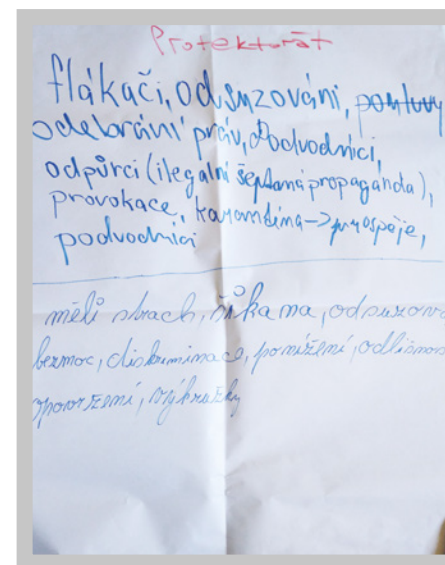 Protektorát
flákači, odsuzováni,
odebráni práv, podvodníci,
odpůrci (ilegalní šeptaná propaganda),
provokace, karanténa -> prospěje,
podvodníci
měli strach, šikana, odsuzová
bezmoc, diskriminace, ponížení, odlišnos
opovržení, výhražky